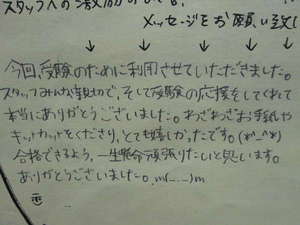 スタッフへの激励
メッセージをお願い致し
↓ ↓ ↓ ↓ ↓
今回、受験のために利用させていただきました。
スタッフみんな親切で、そして受験の応援をしてくれて
本当にありがとうございました。わざわざお手紙や
キットカットをくださり、とても嬉しかったです。(*^_^*)
合格できるよう、一生懸命頑張りたいと思います。
ありがとうございました。m(_ _)m